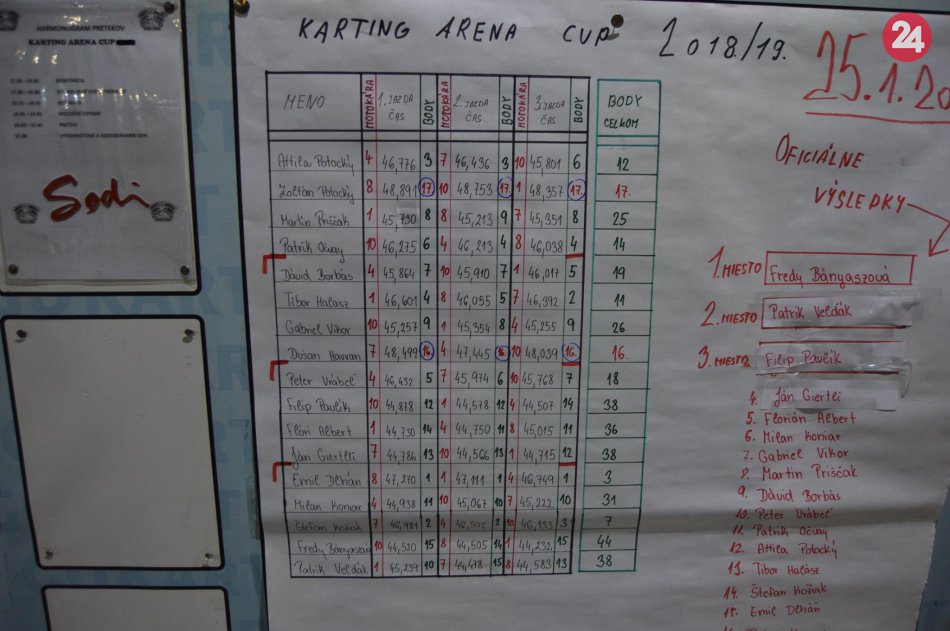 HARMONOGRAM PRETEKOV
KARTING ARENA CUP
REGISTRÁCIA
PRETEKY
Sodi
KARTING ARENA CUP 2018/19.
24
25.1.20
MENO MOTOKÁRA 1. JAZDA ČAS BODY MOTOKÁRA 2. JAZDA ČAS BODY MOTOKÁRA 3. JAZDA ČAS BODY BODY CELKOM
Attila Potocký 4 46,776 3 7 46,436 3 10 45,801 6 12
Zoltán Potocký 8 48,891 17 10 48,753 17 1 48,357 17. 17.
Martin Priščak 1 45,730 8 8 45,213 9 7 45,351 8 25
Patrik Očvay 10 46,275 6 4 46,213 4 8 46,038 4 14
Dávid Borbás 4 45,864 7 10 45,910 7 1 46,017 5 19
Tibor Halász 1 46,601 4 8 46,055 5 7 46,992 2 11
Gabriel Vikor 10 45,257 9 1 45,354 8 4 45,255 9 26
Dušan Havran 7 48,499 16. 4 47,445 16 10 48,039 16. 16.
Peter Vrábcé 4 46,432 5 7 45,974 6 10 45,768 7 18
Filip Pavlík 10 44,878 12 1 44,578 12 4 44,507 14 38
Flori Albert 1 44,730 14 4 44,750 11 8 45,015 11 36
Ján Giertli 7 44,786 13 10 44,566 13 1 44,715 12 38
Emil Dĺháň 8 47,270 1 1 47,111 1 4 46,749 1 3
Milan Koniar 4 44,938 11 10 45,067 10 7 45,222 10 31
Štefan Kožiak 7 46,981 2 4 46,502 2 10 46,233 3 7
Fredy Bányaszová 10 44,520 15 8 44,505 14 1 44,232 15 44
Patrik Veldák 1 45,239 10 7 44,478 15 8 44,583 13 38
OFICIÁLNE
VÝSLEDKY
1. MIESTO Fredy Bányaszová
2. MIESTO Patrik Veldák
3. MIESTO Filip Pavlík
4. Ján Giertli
5. Florián Albert
6. Milan Koniar
7. Gabriel Vikor
8. Martin Priščak
9. Dávid Borbás
10. Peter Vrábcé
11. Patrik Očvay
12. Attila Potocký
13. Tibor Halász
14. Štefan Kožiak
15. Emil Dĺháň